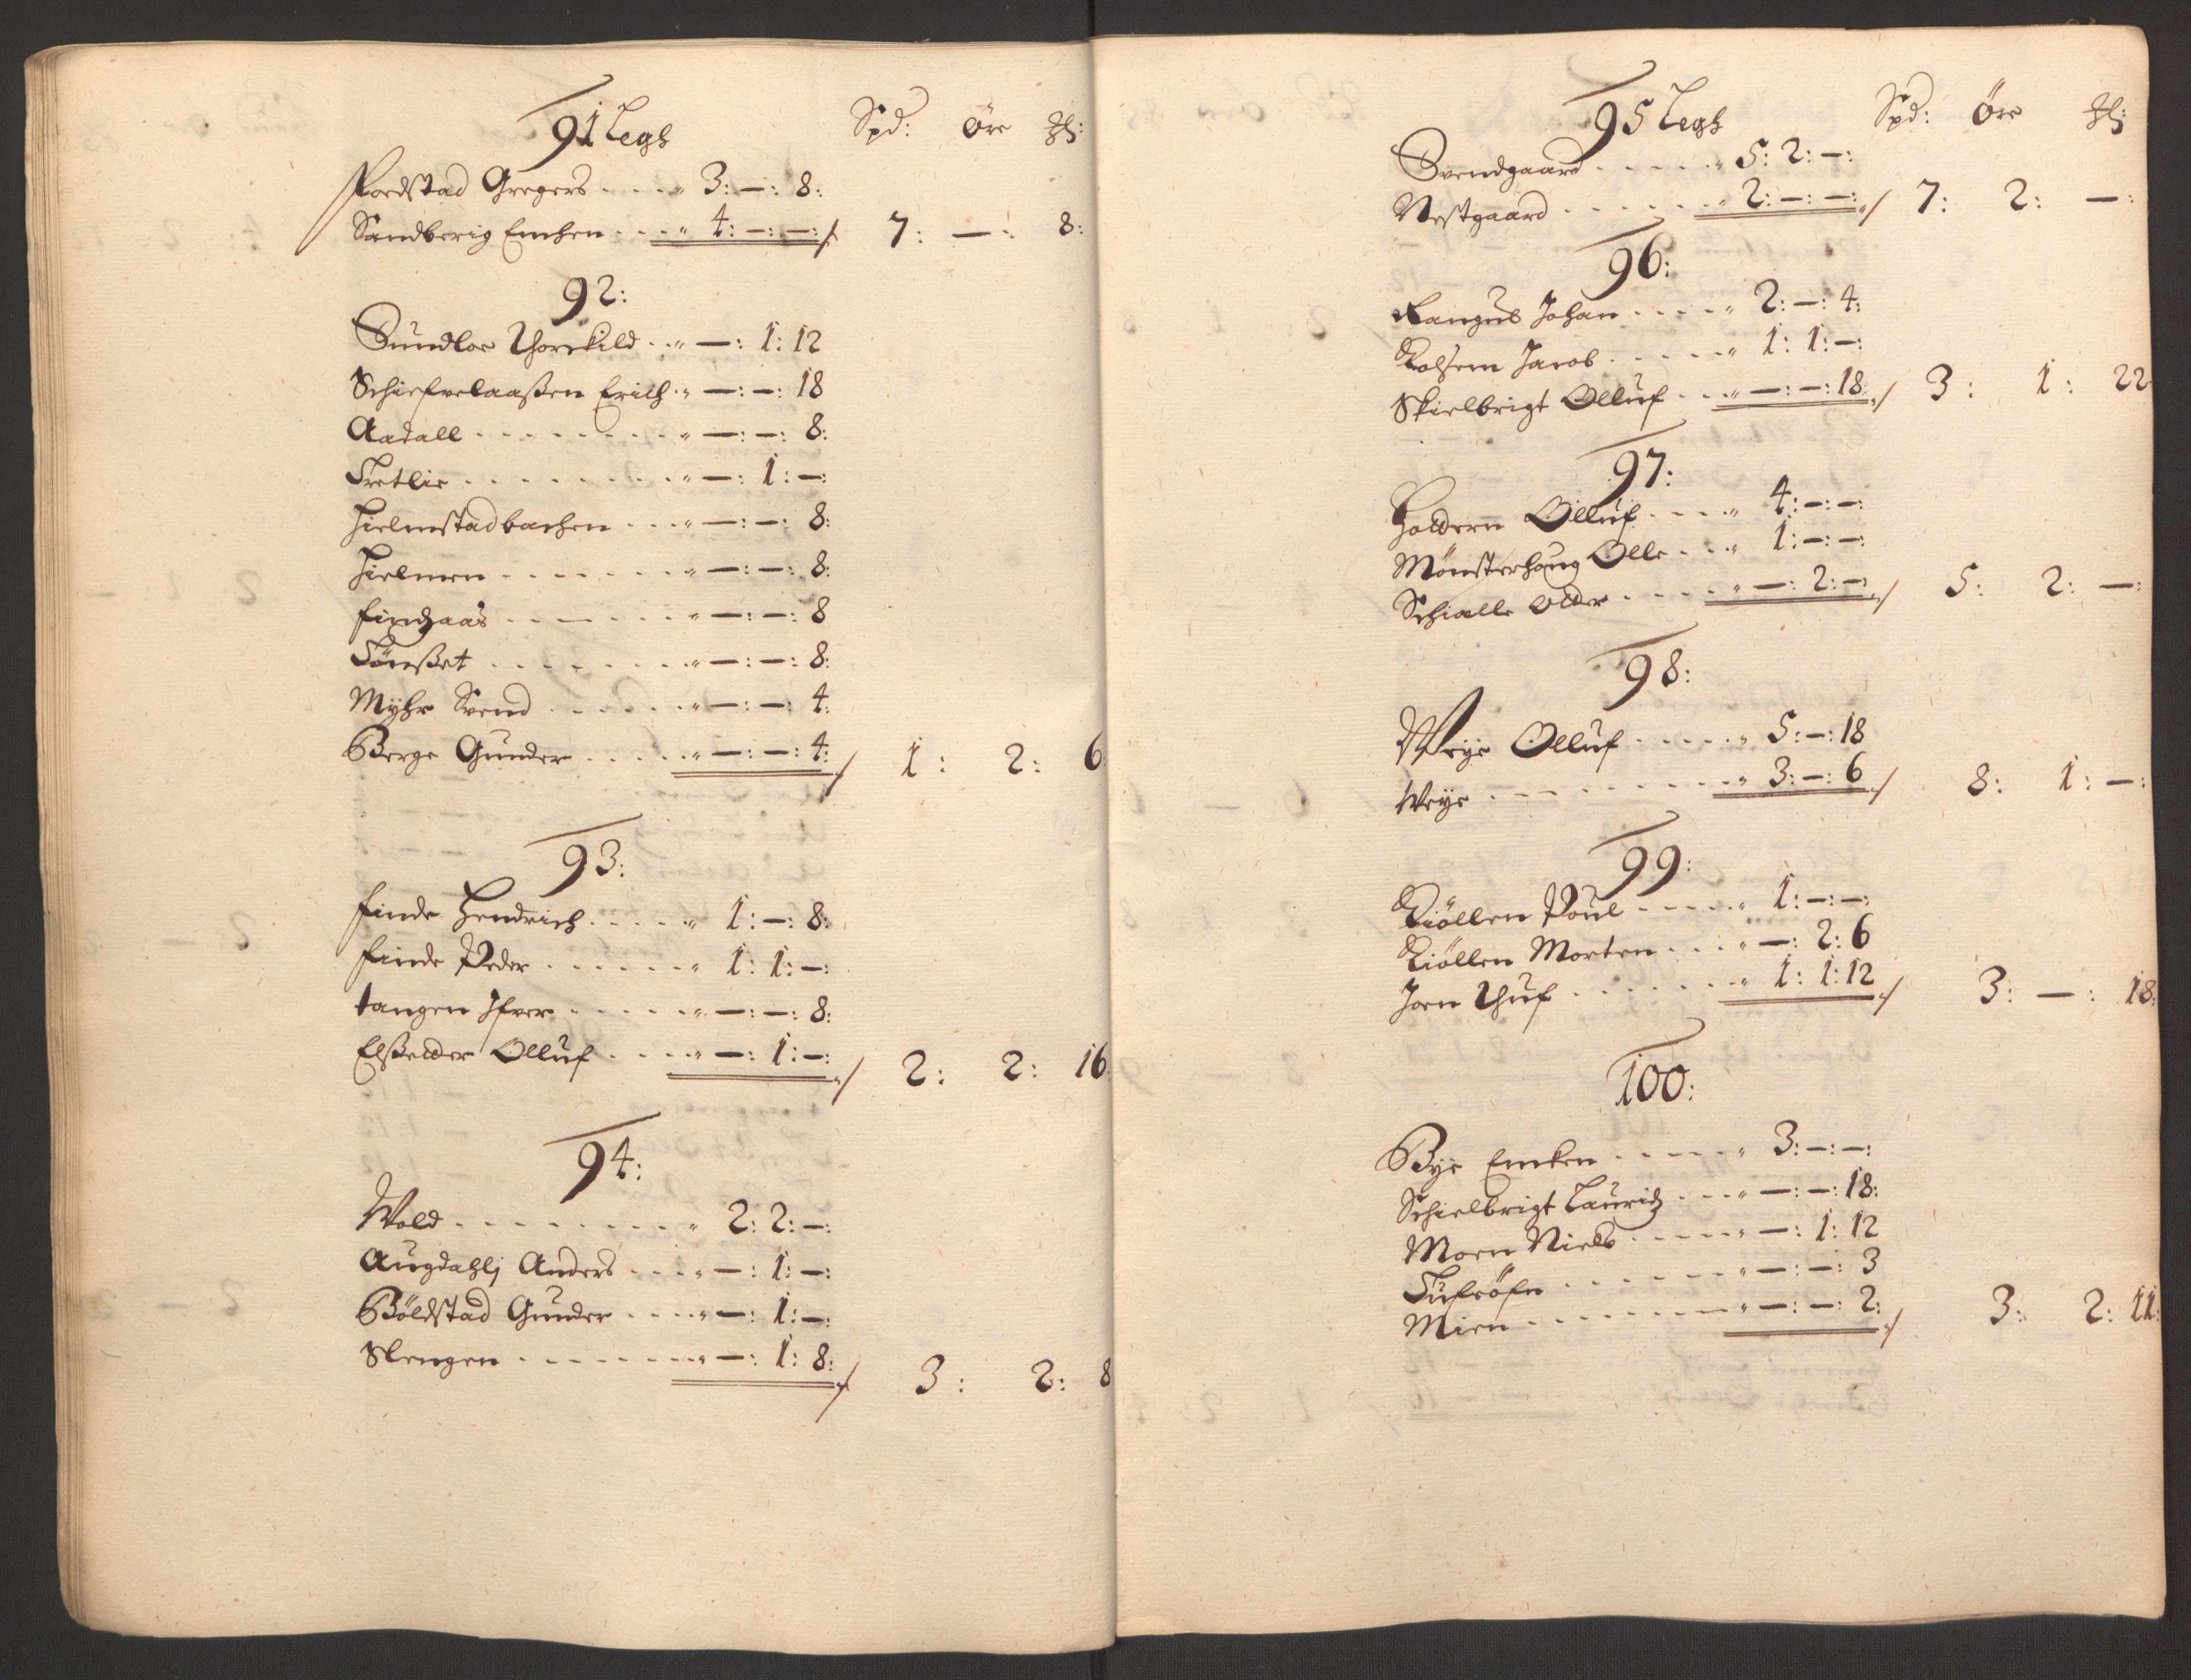 91 Legh Spd: Øre ꝛß:
Fordstad Gregers . . . . 3: — : 8:
Sandberig Emhen . . . 4: — : — : / 7: — : 8:
92:
Sundloe Thorekild . . — : 1: 12
Schiefvelaaßen Erich . — : — : 18
Aadall . . . . — : — : 8:
Tretlie . . . . — : 1: — :
Hielmstadbachen . . . — : — : 8:
Hielmen . . . . — : — : 8:
Findzaas . . . . — : — : 8
Tønßet . . . . — : — : 8:
Myhr Svend . . . . — : — : 4:
Berge Gunder . . . . — : — : 4: / 1: 2: 6
93:
Finde Hendrich . . . . 1: — : 8:
Finde Peder . . . . 1: 1: — :
tangen Ifver . . . . — : — : 8:
Elßelder Olluf . . . . — : 1: — : / 2: 2: 16
94:
Wold . . . . 2: 2: — :
Augdahlj Anders . . . . — : 1: — :
Böldstad Gunder . . . . — : 1: — :
Slengen . . . . — : 1: 8: / 3: 2: 8
95 Legh Spd: Øre
Svendgaard . . . . 5: 2: — :
Nestgaard . . . . 2: — : — : / 7: 2: — :
96:
Rangnes Johan . . . . 2: — : 4:
Rolsem Jacob . . . . 1: 1: — :
Skielbrigt Olluf . . . — : — : 18: / 3: 1: 22
97:
Holdern Olluf . . . . 4: — : — :
Mönsterhoug Olle . . . 1: — : — :
Schialle older . . . . — : 2: — : / 5: 2: — :
98:
Weye Olluf . . . . 5: — : 18
Weye . . . . 3: — : 6 / 8: 1: — :
99:
Kiöllen Poul . . . . 1: — : — :
Kiöllen Morten . . . — : 2: 6
Joen Thuf . . . . 1: 1: 12 / 3: — : 18:
100:
Bye Emken . . . . 3: — : — :
Schielbrigt Lauridz . . . — : — : 18:
Moen Niels . . . . — : 1: 12
Tufröfn . . . . — : — : 3
Mien . . . . — : — : 2: / 3: 2: 11: